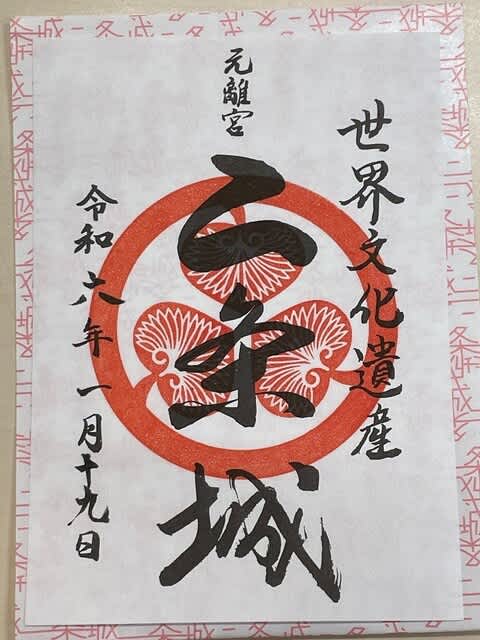 世界文化遺産
元離宮
二条城
令和六年一月十九日